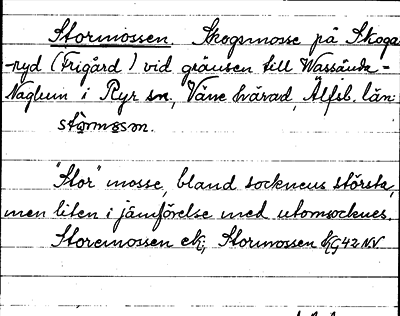 Stormossen. Skogsmosse på Skoga-
-ryd (Frigård) vid gränsen till Wassända-
Naglum i Ryr sn., Väne härad, Älfsb. län.
stòrmosən.
"Stor" mosse, bland socknens största,
men liten i jämförelse med utomsocknes.
Storemossen ek; Stormossen KG42NV